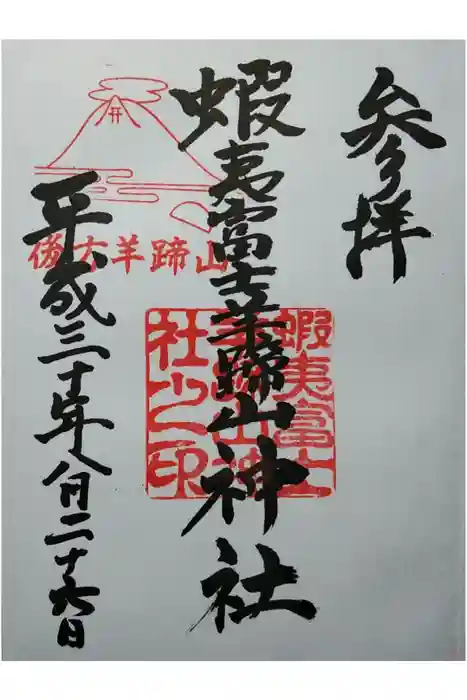 参拝
蝦夷富士羊蹄山神社
平成三十年八月二十六日
羊蹄山
蝦夷富士
羊蹄山神
社之印